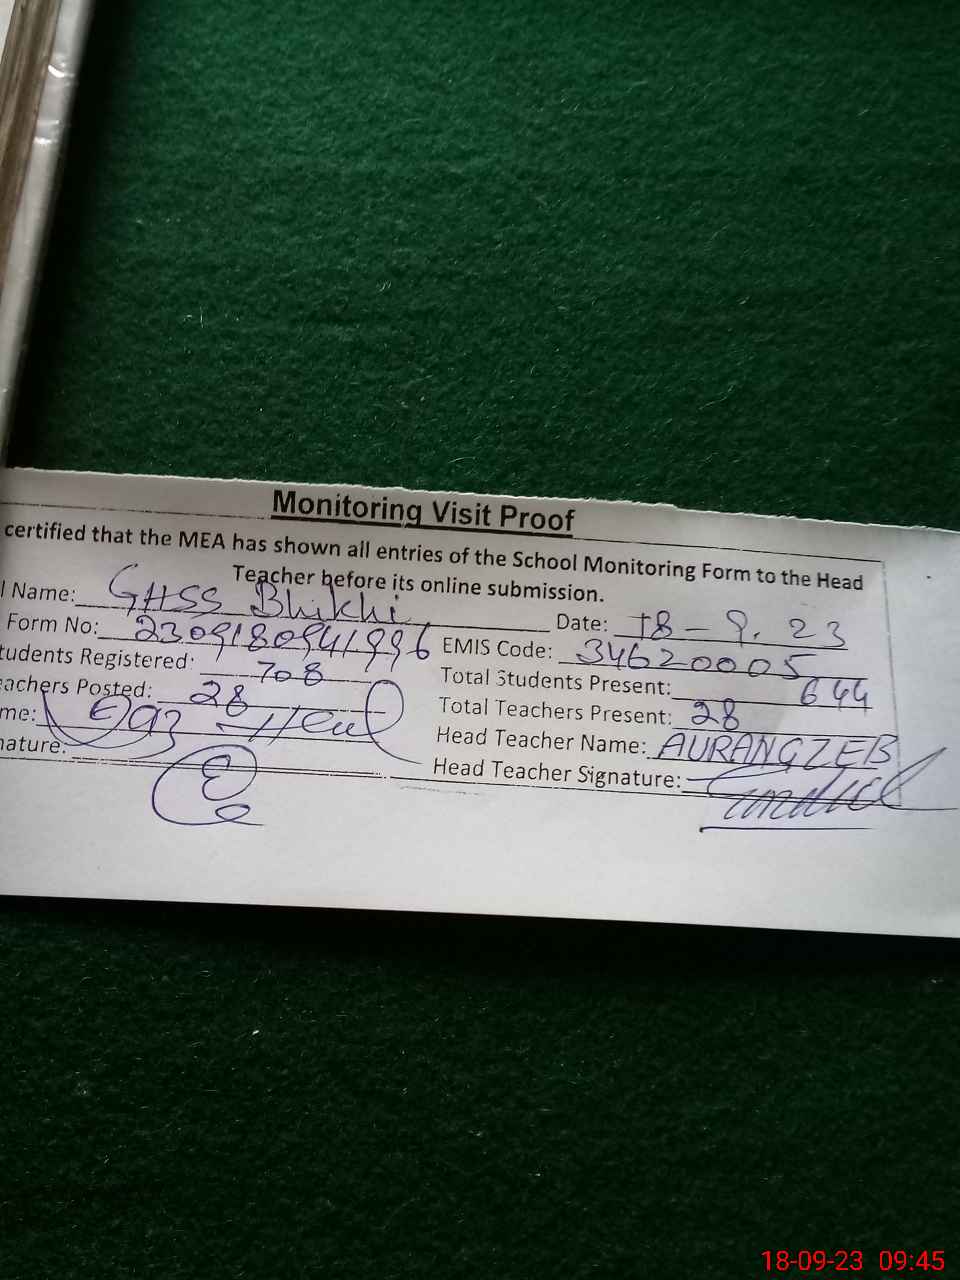 Monitoring Visit Proof
certified that the MEA has shown all entries of the School Monitoring Form to the Head
Teacher before its online submission.
l Name: GHSS Bhikhi Date: 18-9.23
Form No: 2309180941996 EMIS Code: 34620005
tudents Registered: 708 Total Students Present: 644
eachers Posted: 28 Total Teachers Present: 28
me: Head Teacher Name: AURANGZEB
nature: Head Teacher Signature:
18-09-23 09:45